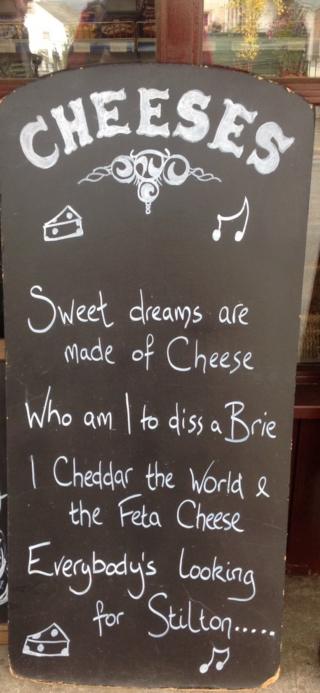 CHEESES
Sweet dreams are
made of Cheese
Who am I to diss a Brie
I Cheddar the World &
the Feta Cheese
Everybody's Looking
for Stilton.....